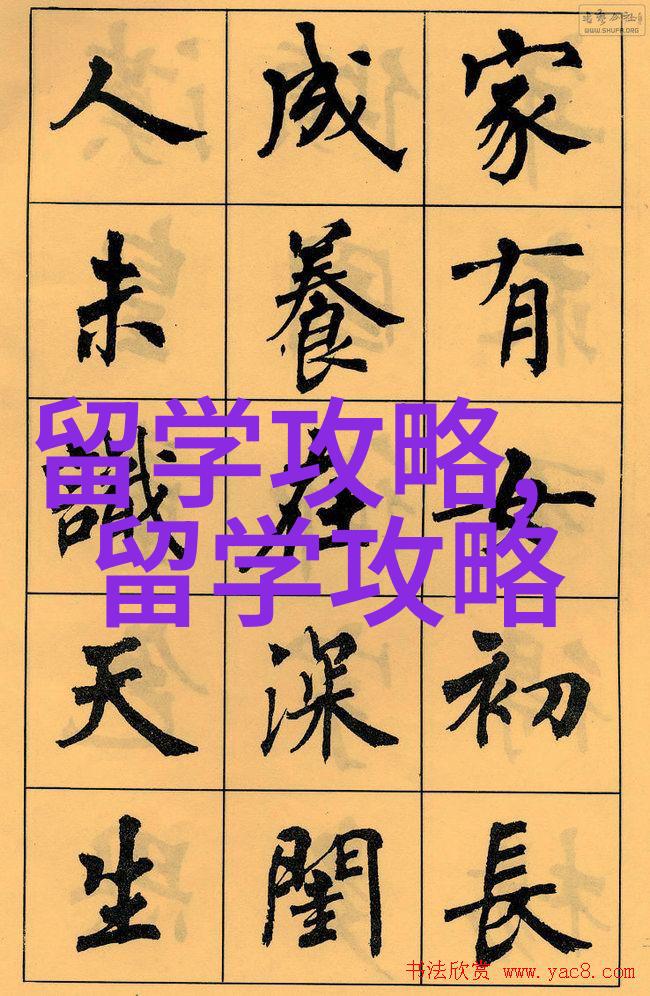 WWW.SHUFA.ORG
家有女初長
成養在深閨
人未識天生
留学攻略,
留学攻略
书法欣赏 www.yac8.com